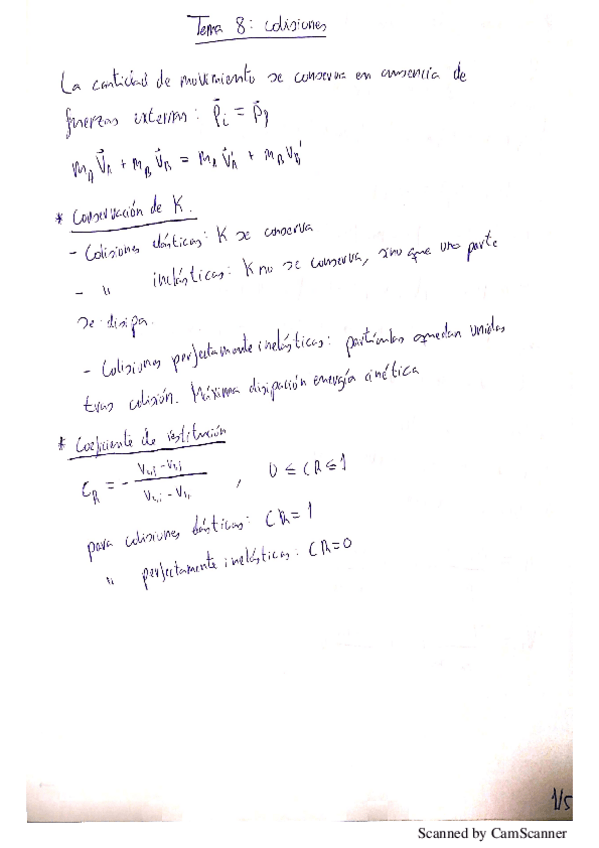 Tema 8: colisiones
La cantidad de movimiento se conserva en ausencia de
fuerzas externas: p⃗i = p⃗f
mA v⃗A + mB v⃗B = mA v⃗A' + mB vB'
* Conservación de K.
- Colisiones elásticas: K se conserva
- " inelásticas: K no se conserva, sino que una parte
se disipa.
- Colisiones perfectamente inelásticas: partículas quedan unidas
tras colisión. Máxima disipación energía cinética
* Coeficiente de restitución
CR = - , 0 ≤ CR ≤ 1
para colisiones elásticas: CR = 1
" perfectamente inelásticas: CR = 0
1/5
Scanned by CamScanner